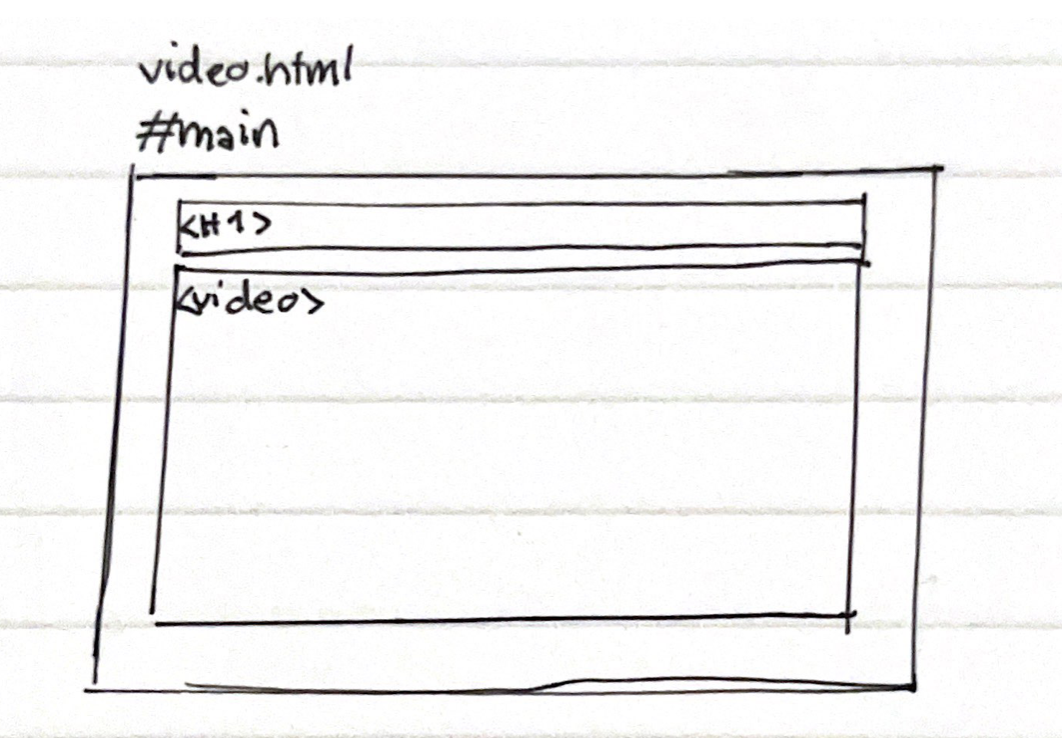 video.html
#main
<H1>
<video>